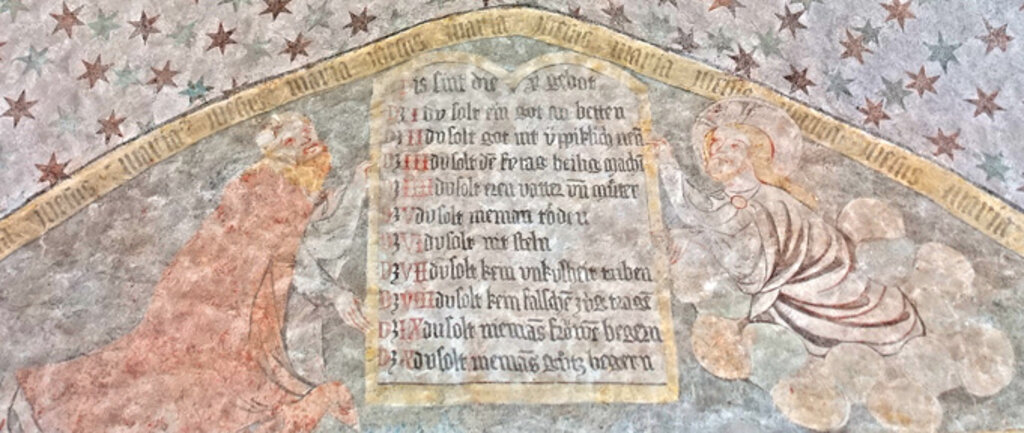 maria ihesus maria ihesus maria ihesus maria ihesus maria ihesus maria
is sint die x gebot
Dz I du solt ein got an betten
Dz II du solt got nit üppiklich nen̄
Dz III du solt dē fyrtag heilig machē
Dz IIII du solt eren vatter vn̄ muͦtter
Dz V du solt nieman töden
Dz VI du solt nit steln
Dz VII du solt kein vnkuscheit triben
Dz VIII du solt kein falschē zúg tragē
Dz IX du solt niemās begern
Dz X du solt niemās guͦtz begern